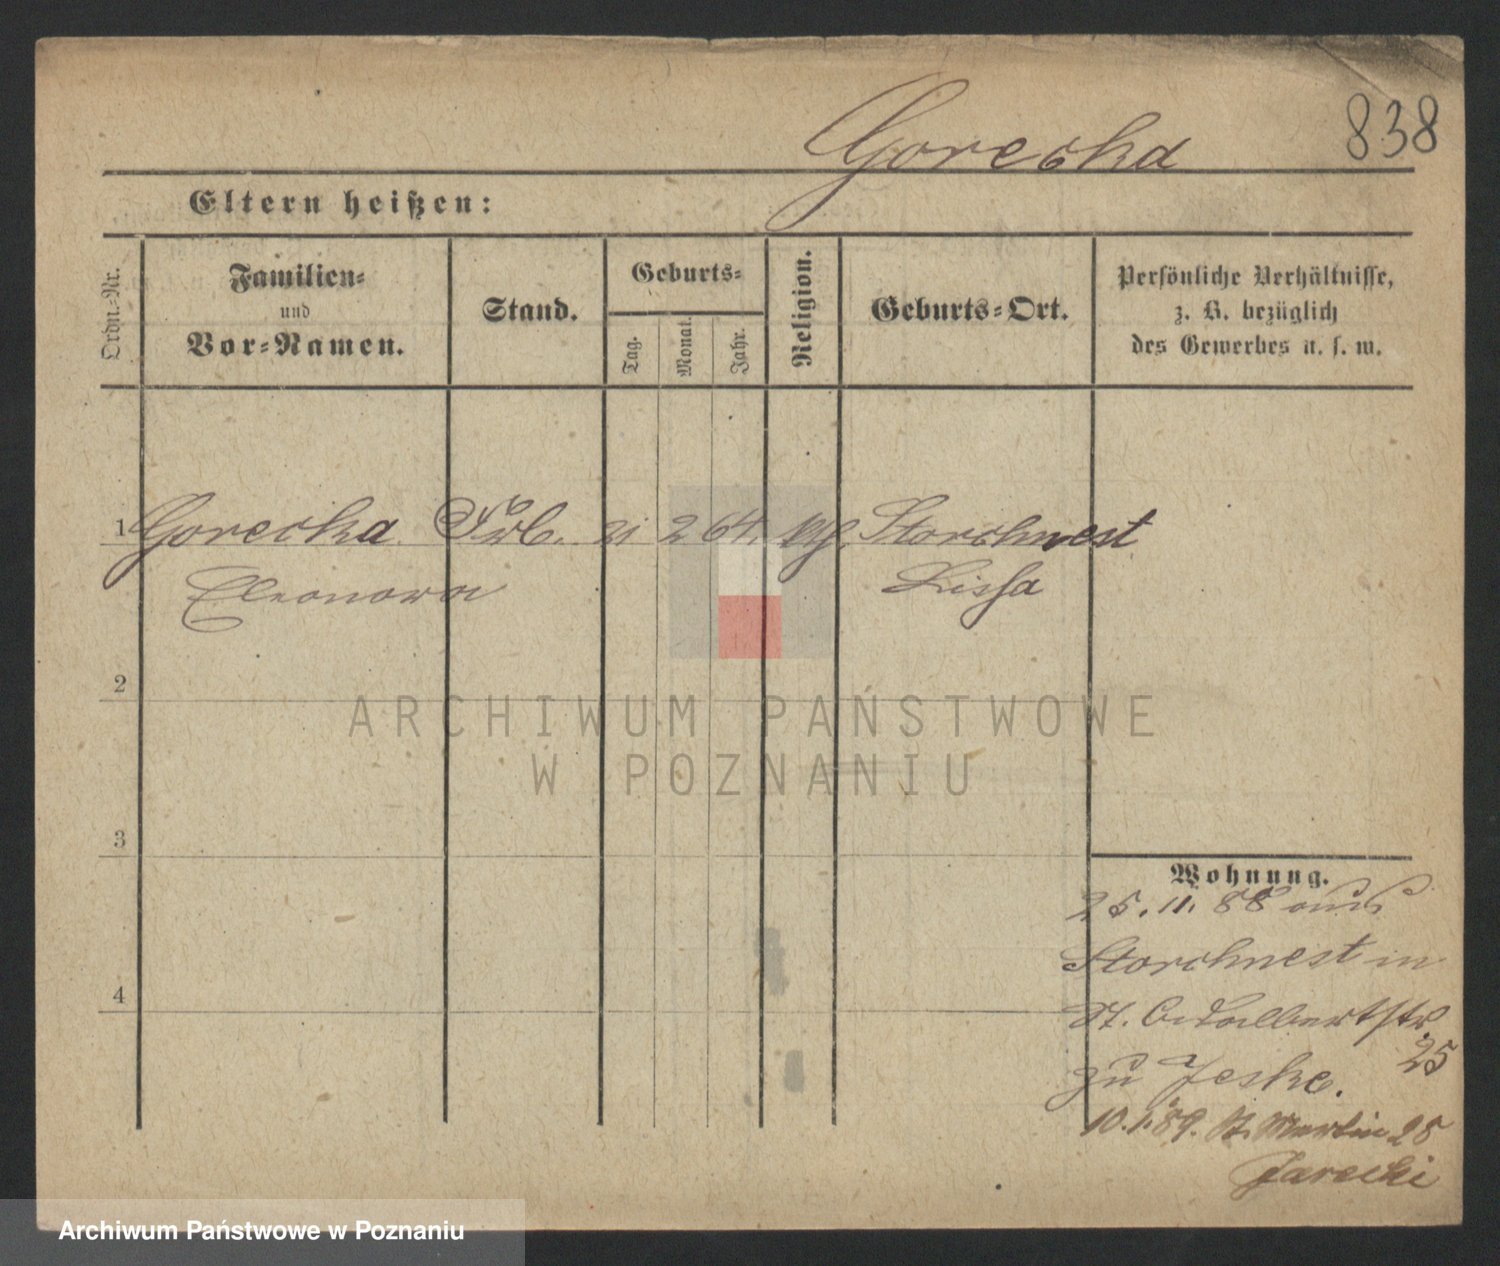 Gorecka
838
Eltern heißen:
Ordn.-Nr.
Familien-
und
Vor-Namen.
Stand.
Geburts-
Tag.
Monat.
Jahr.
Religion.
Geburts-Ort.
Persönliche Verhältnisse,
z. B. bezüglich
des Gewerbes u. s. w.
1 Gorecka 21 2 64. Storchnest
Eleonora Lissa
2
ARCHIWUM PAŃSTWOWE
W POZNANIU
3
Wohnung.
25. 11. 88 aus
Storchnest in
4
St. Adalbertstr
25
zu Jeske.
10. 1. 89. St. Martin 28
Jarecki
Archiwum Państwowe w Poznaniu